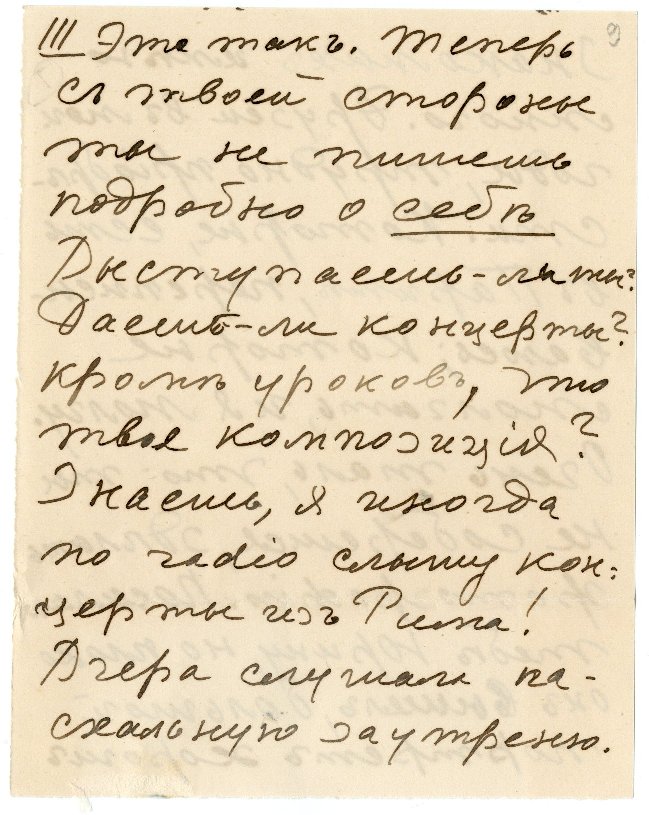 III Это такъ. Теперь
съ твоей стороны
ты не пишешь
подробно о себѣ
Выступаешь-ли ты?
Даешь-ли концерты?
кромѣ уроковъ, что
твоя композиція?
Знаешь, я иногда
по radio слышу кон:
церты изъ Рима!
Вчера слушала па-
схальную заутреню.